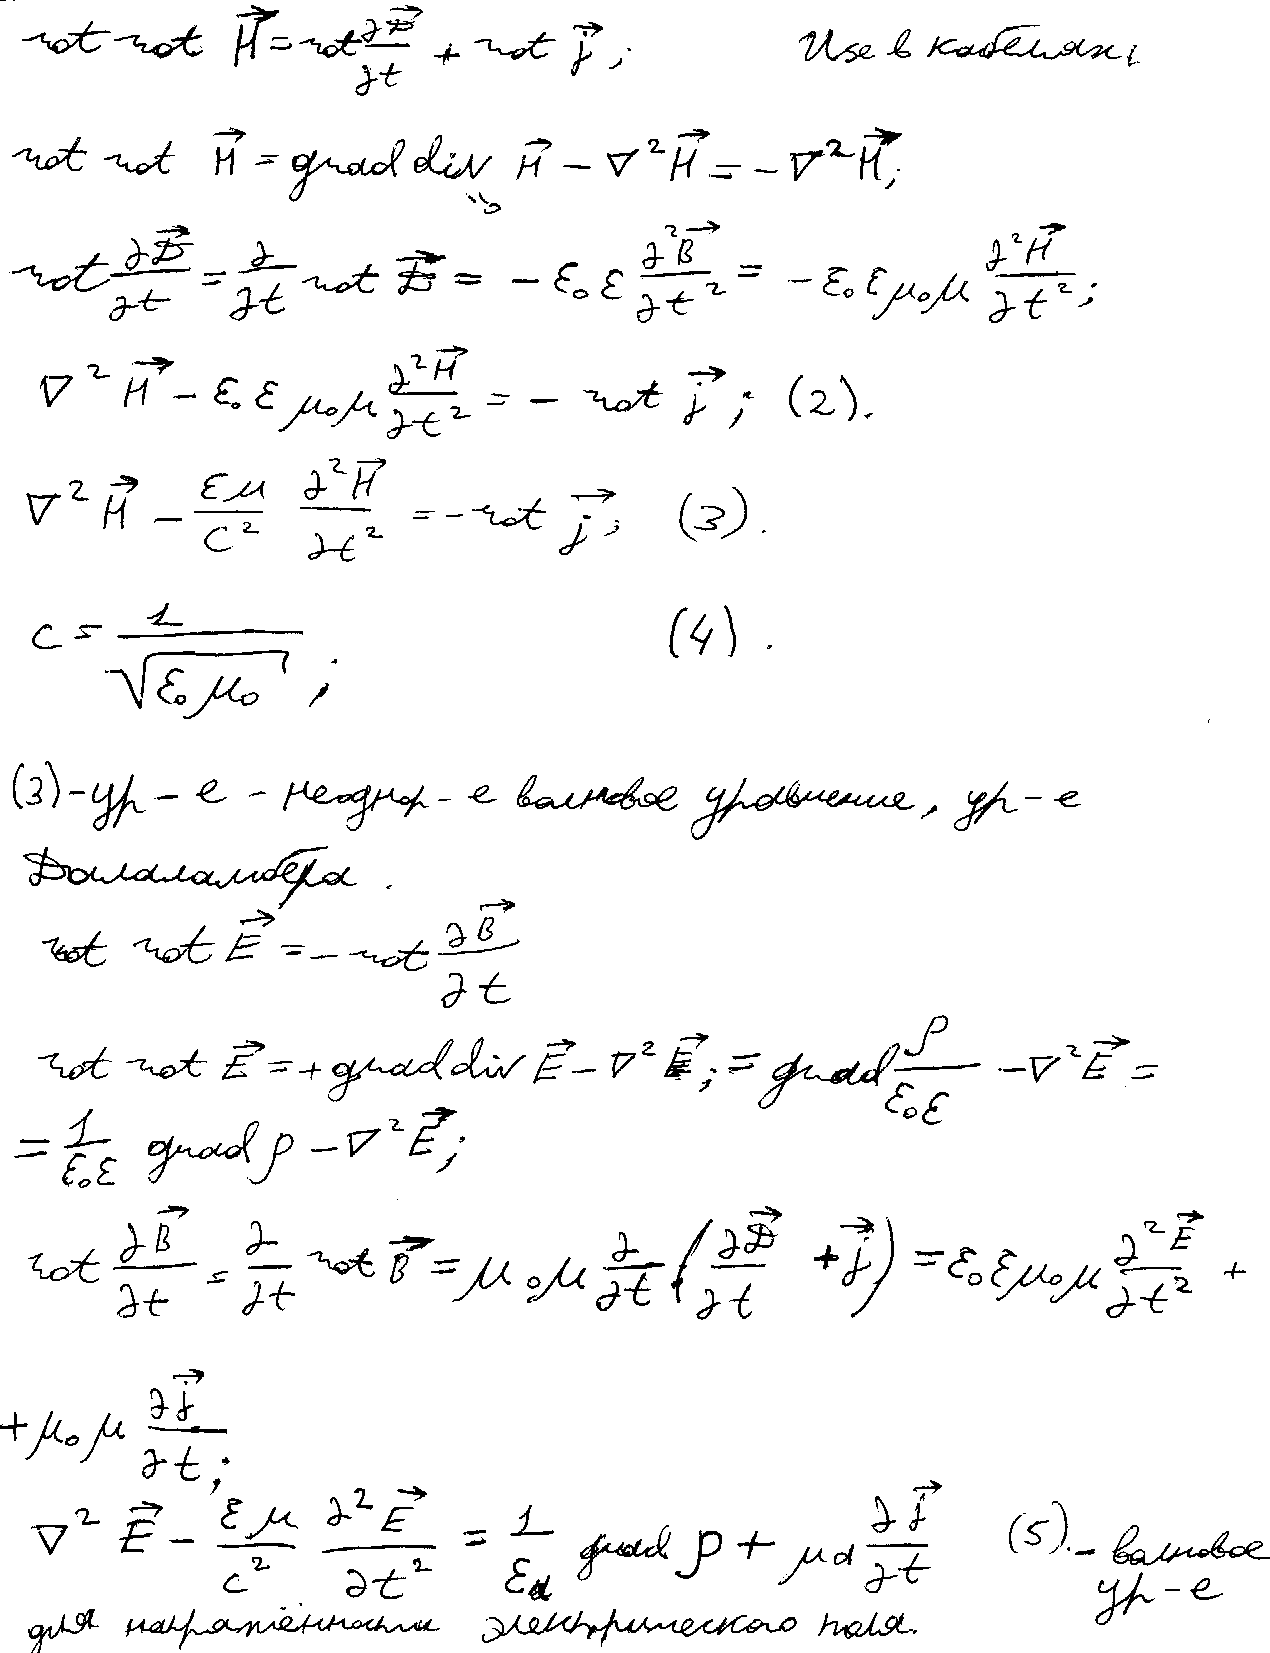 rot rot H⃗ = rot ∂D⃗/∂t + rot j⃗; Use в кабелях
rot rot H⃗ = grad div H⃗ − ∇²H⃗ = −∇²H⃗;
rot ∂D⃗/∂t = ∂/∂t rot D⃗ = −ε₀ε ∂²B⃗/∂t² = −ε₀εμ₀μ ∂²H⃗/∂t²;
∇²H⃗ − ε₀εμ₀μ ∂²H⃗/∂t² = − rot j⃗; (2).
∇²H⃗ − εμ/c² ∂²H⃗/∂t² = −rot j⃗; (3).
c = 1/√(ε₀μ₀); (4).
(3)-ур-е - неоднор-е волновое уравнение, ур-е
Далаламбера.
rot rot E⃗ = −rot ∂B⃗/∂t
rot rot E⃗ = +grad div E⃗ − ∇²E⃗; = grad ρ/ε₀ε − ∇²E⃗ =
= 1/ε₀ε grad ρ − ∇²E⃗;
rot ∂B⃗/∂t = ∂/∂t rot B⃗ = μ₀μ ∂/∂t (∂D⃗/∂t + j⃗) = ε₀εμ₀μ ∂²E⃗/∂t² +
+ μ₀μ ∂j⃗/∂t;
∇²E⃗ − εμ/c² ∂²E⃗/∂t² = 1/εₐ grad ρ + μₐ ∂j⃗/∂t (5). - волновое
ур-е
для напряжённости электрического поля.